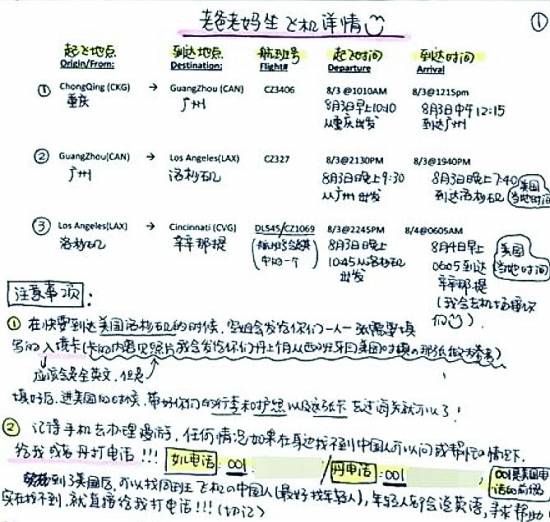 老爸老妈坐飞机详情 ①
起飞地点 到达地点 航班号 起飞时间 到达时间
Origin/From: Destination: Flight# Departure Arrival
① ChongQing (CKG) → GuangZhou (CAN) CZ3406 8/3@1010AM 8/3@1215pm
重庆 广州 8月3日早上10:10 8月3日中午12:15
从重庆出发 到达广州
② GuangZhou(CAN) → Los Angeles(LAX) CZ327 8/3@2130PM 8/3@1940PM
广州 洛杉矶 8月3日晚上9:30 8月3日晚上7:40
从广州出发 到达洛杉矶 美国当地时间
③ Los Angeles(LAX) → Cincinnati (CVG) DL545/CZ1069 8/3@2245PM 8/4@0605AM
洛杉矶 辛辛那提 8月3日晚上 8月4日早上
中的一个) 10:45从洛杉矶 0605到达
出发 辛辛那提
美国当地时间
(我会去机场接你们)
注意事项:
① 在快要到达美国洛杉矶的时候, 空姐会发给你们一人一张需要填
写的入境卡(卡的内容见照片我会发给你们
应该会是全英文, 但是
填好后, 进美国的时候, 带好你们的行李和护照以及这张卡去过海关就可以了!
② 记得手机去办理漫游, 任何情况如果在身边找不到中国人可以问或帮忙的情况下,
给我或者丹打电话!!! 如电话: 001 / 丹电话: 001 001是美国电话的前缀
到了美国后, 可以找同班飞机的中国人(最好找年轻人), 年轻人都会说英语, 寻求帮助!
实在找不到, 就直接给我打电话!!! (切记)